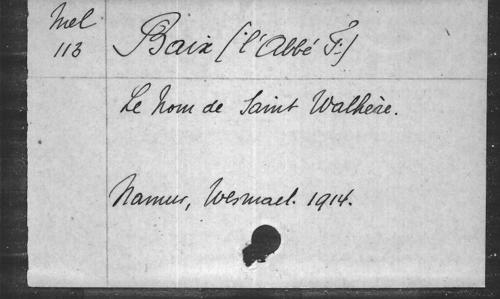 Mel
113
Baix (l'Abbé F.)
Le Nom de Saint Walhère.
Namur, Wesmael. 1914.